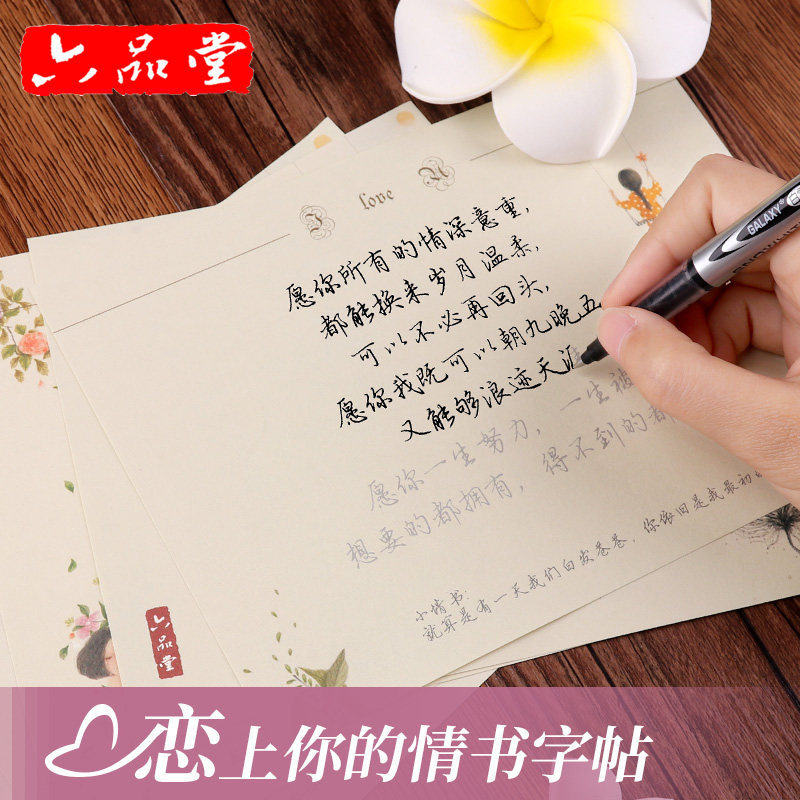 六品堂
I love U
愿你所有的情深意重,
都能换来岁月温柔,
可以不必再回头,
愿你我既可以朝九晚五
又能够浪迹天涯
愿你一生努力，一生被
想要的都拥有，得不到的都
小情书：
就算是有一天我们白发苍苍，你依旧是我最初的
六品堂
GALAXY
恋上你的情书字帖